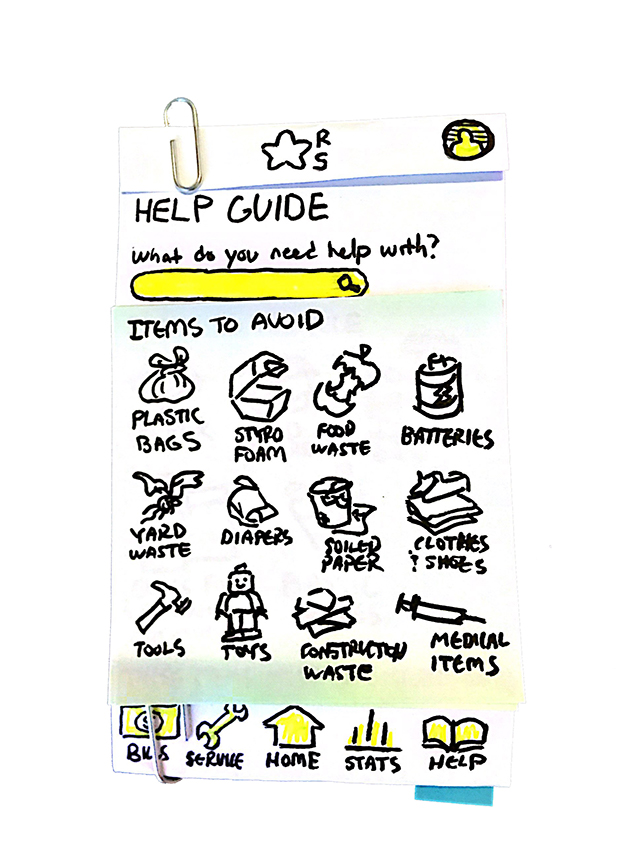 R
S
HELP GUIDE
What do you need help with?
ITEMS TO AVOID
PLASTIC
BAGS
STYRO
FOAM
FOOD
WASTE
BATTERIES
YARD
WASTE
DIAPERS
SOILED
PAPER
CLOTHES
& SHOES
TOOLS
TOYS
CONSTRUCTION
WASTE
MEDICAL
ITEMS
SERVICE
HOME
STATS
HELP